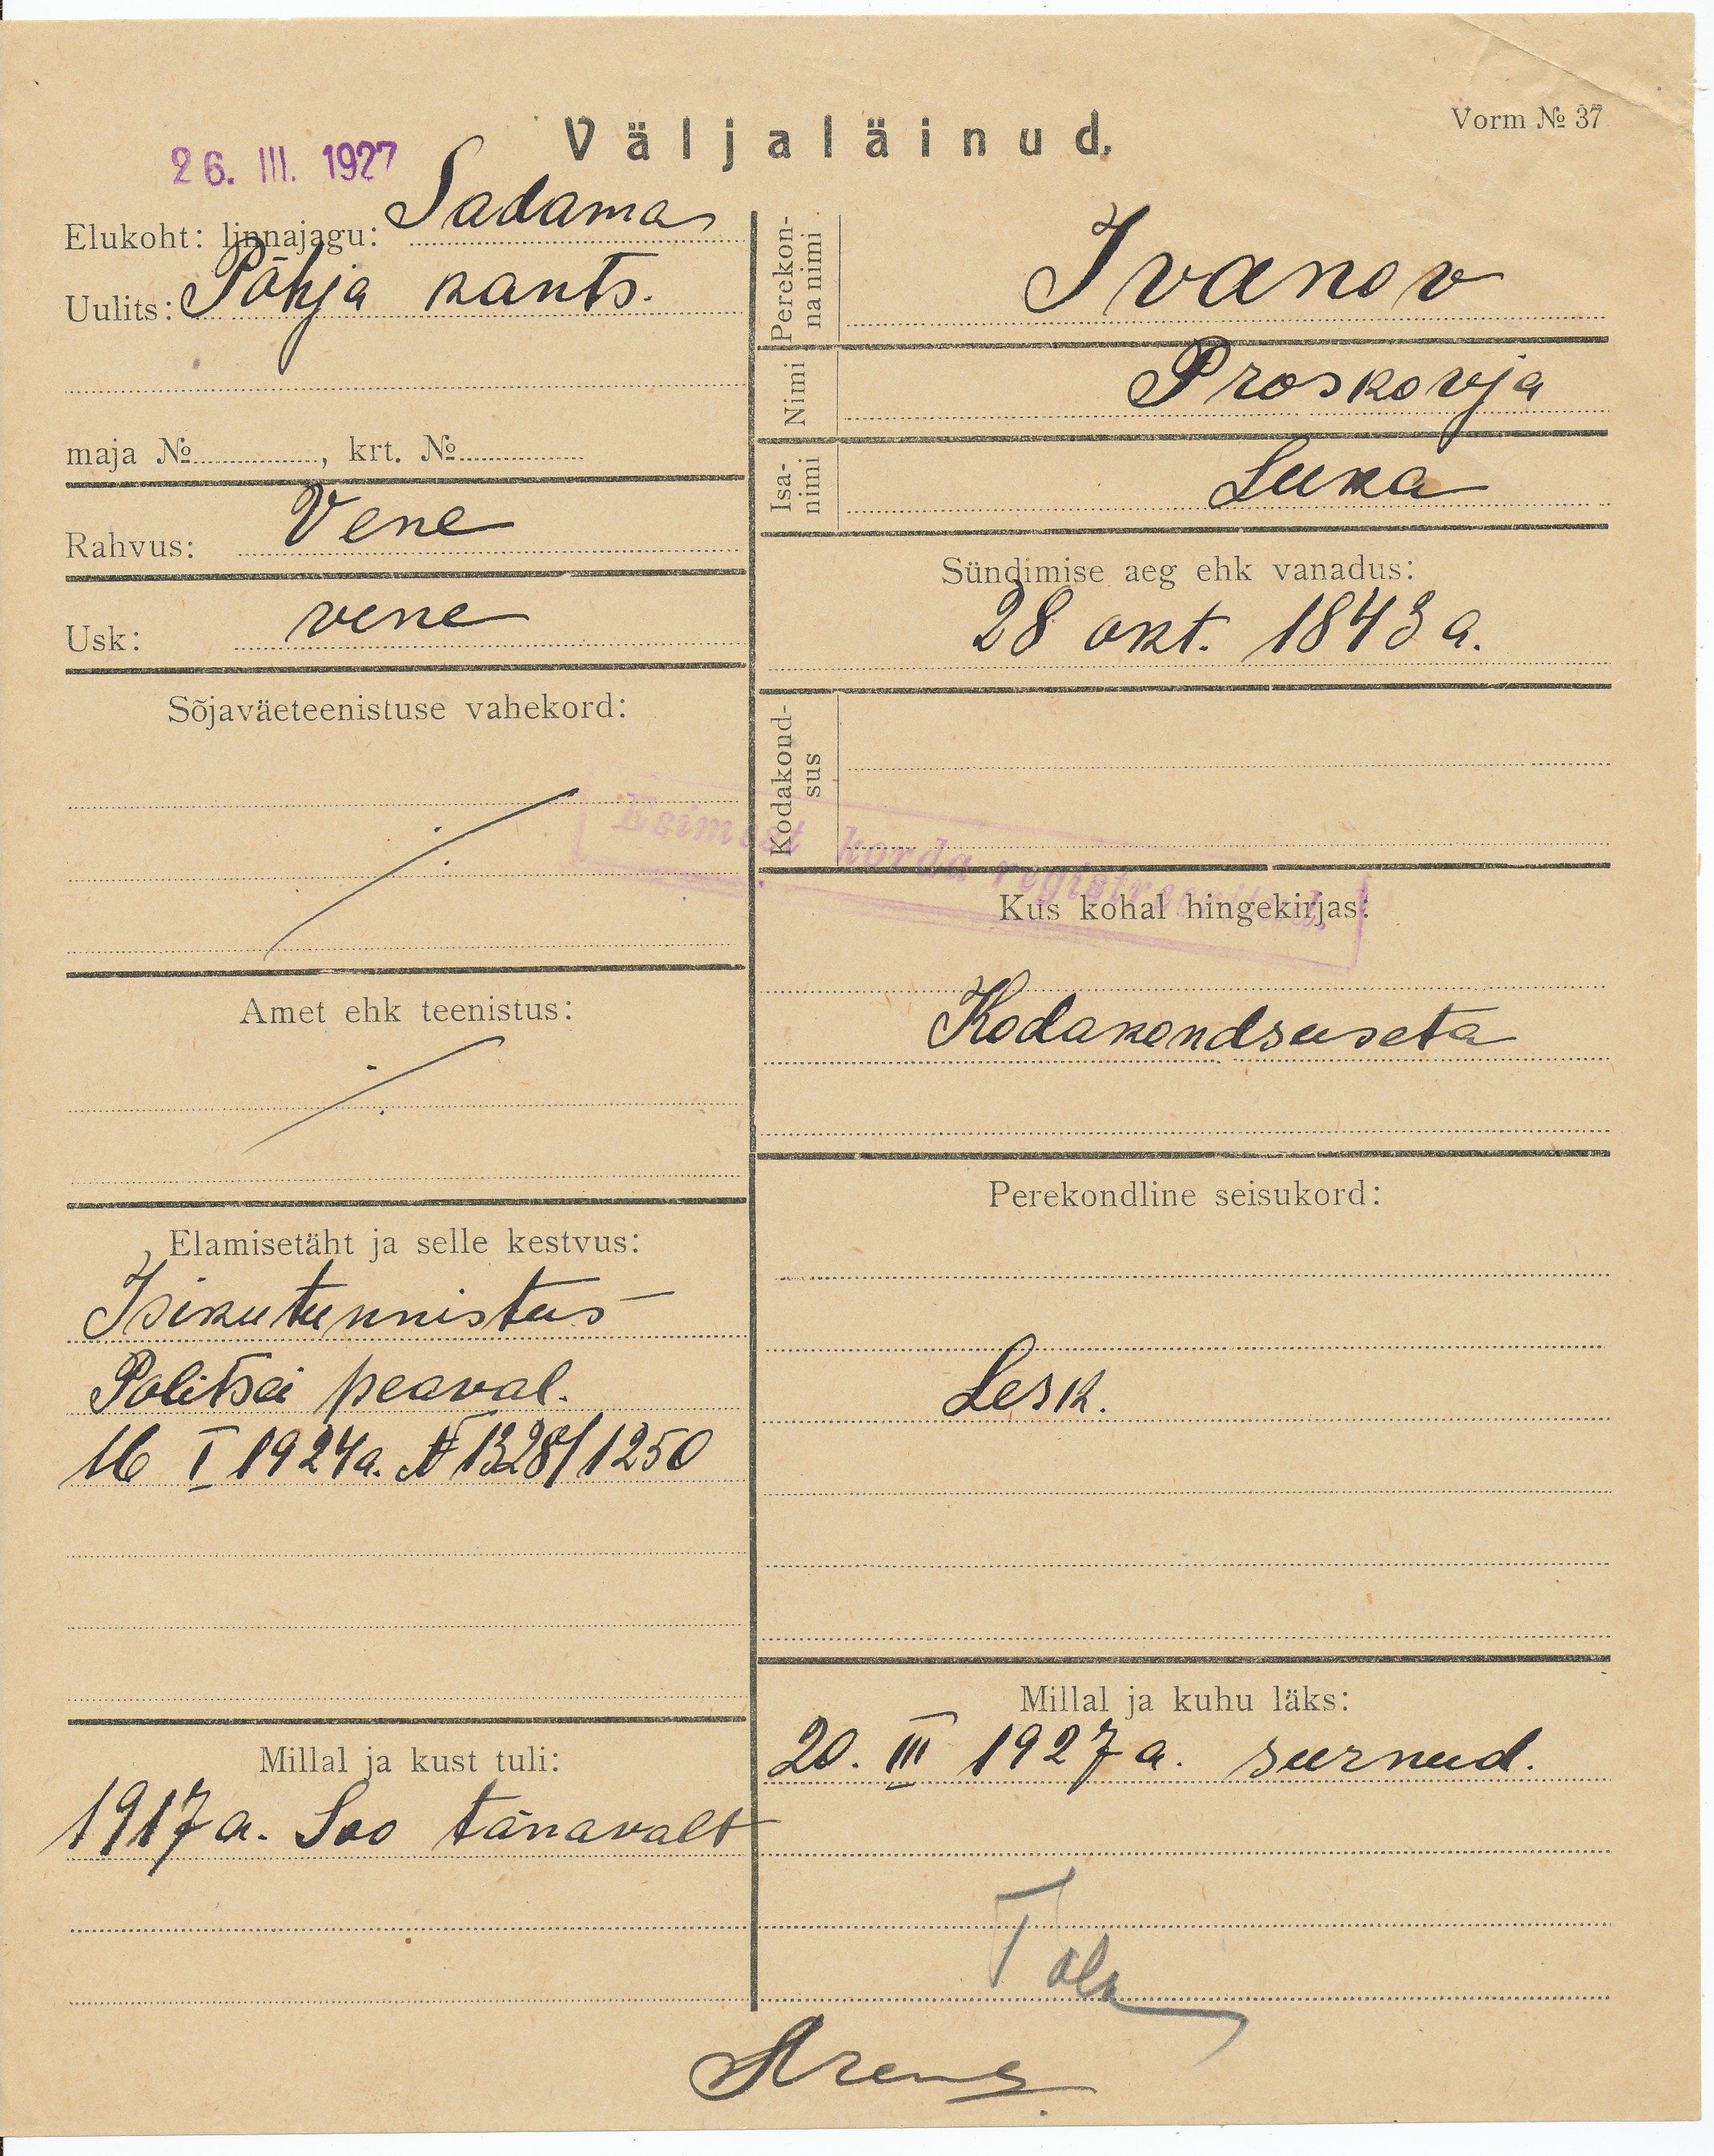 Vorm № 37
Väljaläinud.
26. III. 1927
Elukoht: linnajagu: Sadama
Uulits: Põhja kants.
maja № , krt. №
Rahvus: Vene
Usk: vene
Sõjaväeteenistuse vahekord:
Amet ehk teenistus:
Elamisetäht ja selle kestvus:
Isikutunnistus
Politsei peaval.
16 I 1924a. № 1328/1250
Millal ja kust tuli:
1917 a. Soo tänavalt
Perekon-
na nimi
Ivanov
Nimi
Proskovja
Isa-
nimi
Luka
Sündimise aeg ehk vanadus:
28 okt. 1843 a.
Kodakond-
sus
Esimest korda registreeritud.
Kus kohal hingekirjas:
Kodakondsuseta
Perekondline seisukord:
Lesk.
Millal ja kuhu läks:
20. III 1927 a. surnud.